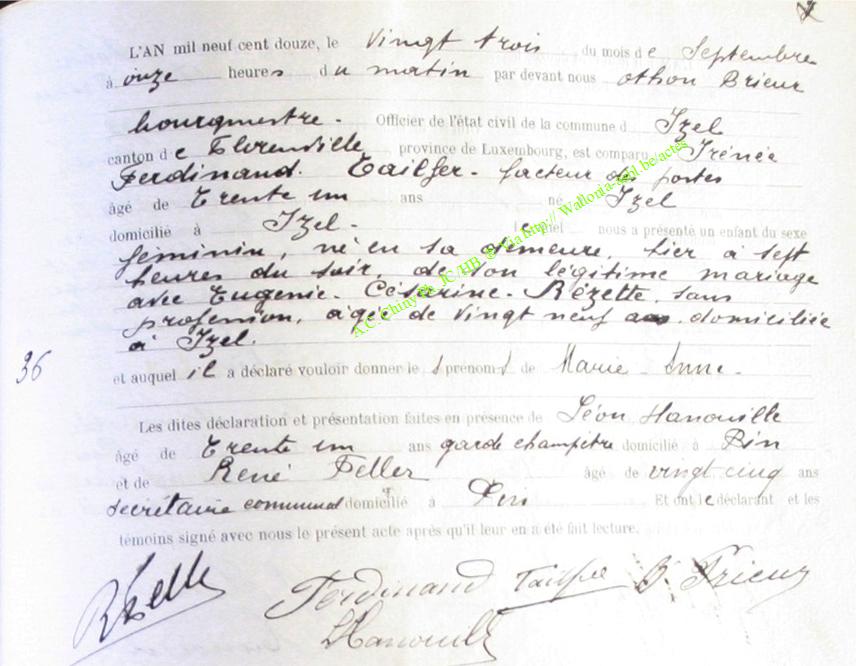 L'AN mil neuf cent douze, le vingt trois du mois de Septembre
à onze heures du matin par devant nous othon Brieux
bourgmestre. Officier de l'état civil de la commune d Izel
canton de Florenville province de Luxembourg, est comparu Irénée
Ferdinand. Tailfer - facteur des postes
âgé de Trente un ans né Izel
domicilié à Izel. lequel nous a présenté un enfant du sexe
féminin, né en sa demeure, hier à sept
heures du soir, de son légitime mariage
avec Eugenie - Césarine - Rézette, sans
profession, agée de vingt neuf ans, domiciliée
à Izel.
36
et auquel il a déclaré vouloir donner le s prénom s de Marie - Anne -
Les dites déclaration et présentation faites en présence de Léon Hanouille
âgé de Trente un ans garde champêtre domicilié à Pin
et de René Feller âgé de vingt cinq ans
secrétaire communal domicilié à Pin Et ont le déclarant et les
témoins signé avec nous le présent acte après qu'il leur en a été fait lecture.
Ferdinand Tailfer
LHanouille
A.C. Chiny de JC/HB @ via http:// Wallonia-asbl.be/actes